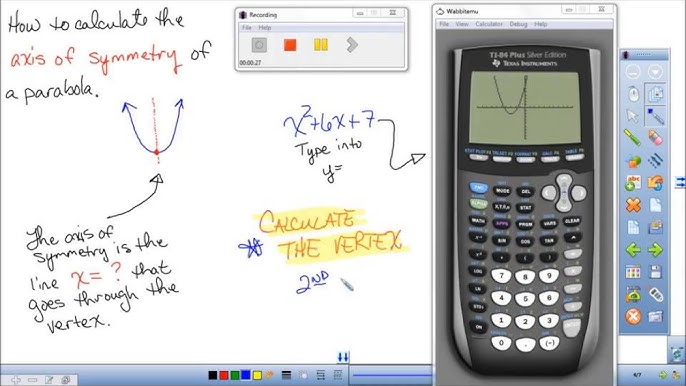 How to calculate the
axis of symmetry of
a parabola.
The axis of
symmetry is the
line x=? that
goes through the
vertex.
Recording
File Help
00:00:27
x²+6x+7
Type into
y=
CALCULATE
THE VERTEX
2ND
Wabbitemu
File View Calculator Debug Help
TI-84 Plus Silver Edition
TEXAS INSTRUMENTS
2ND MODE DEL
ALPHA X,T,θ,n STAT
MATH APPS PRGM VARS CLEAR
SIN COS TAN
LOG 7 8 9
LN 4 5 6
STO 1 2 3
ON 0 . (-)
4/7